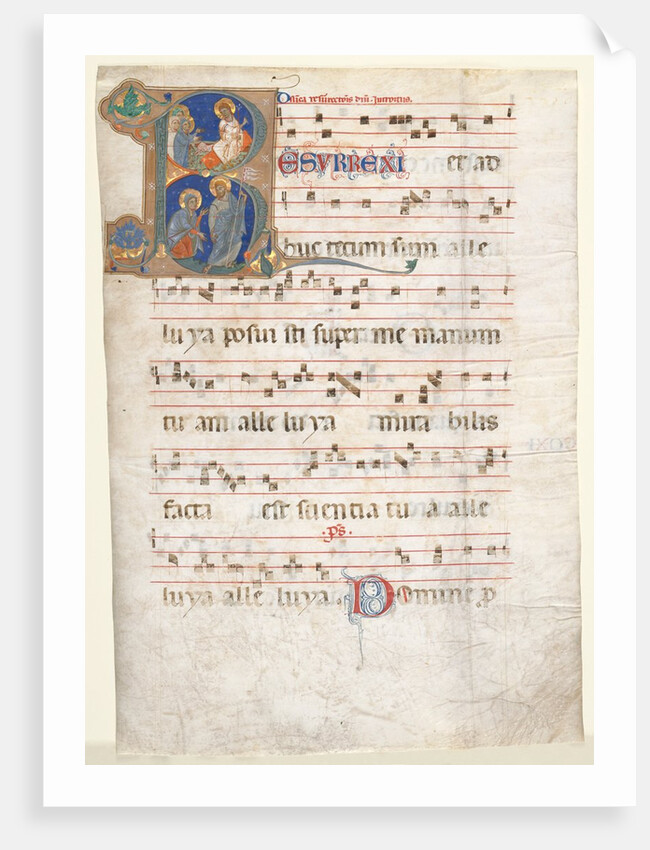 Dn̄ica resurrectōis dn̄i. Introitus.
RESURREXI et ad
huc tecum sum alle
lu ya posui sti super me manum
tu am alle lu ya mira bilis
facta est scientia tu a alle
.p̄s.
lu ya alle lu ya. Domine p